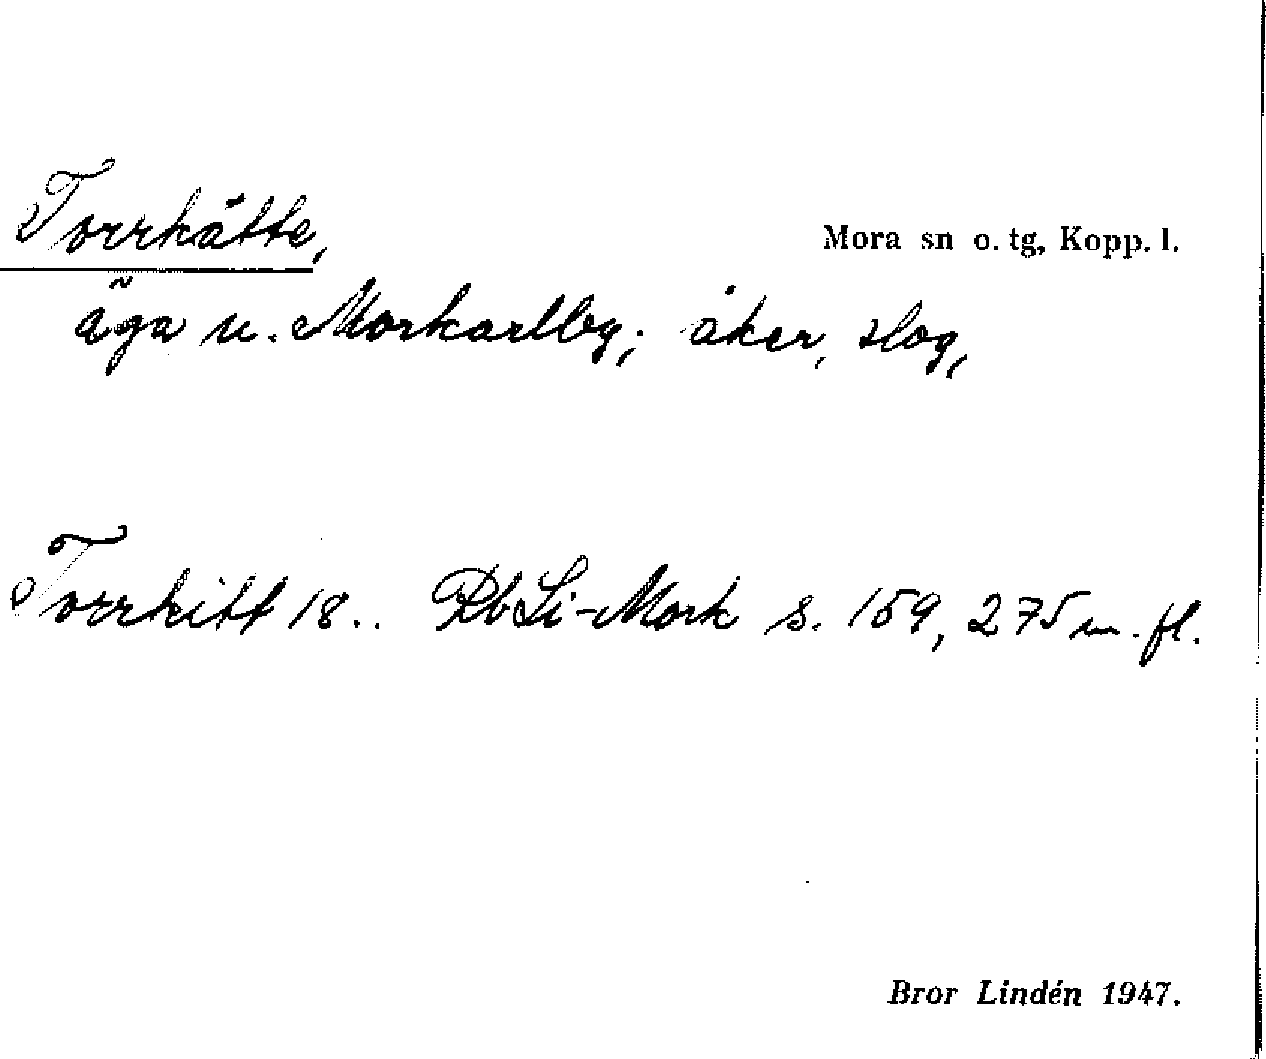 Torrkätte,
Mora sn o. tg, Kopp. l.
äga u. Morkarlby; åker, slog,
Torrkitt 18.. RbLi-Mork s. 159, 275 m. fl.
Bror Lindén 1947.